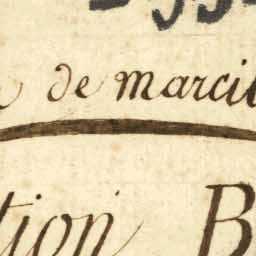 de marcil
tion B